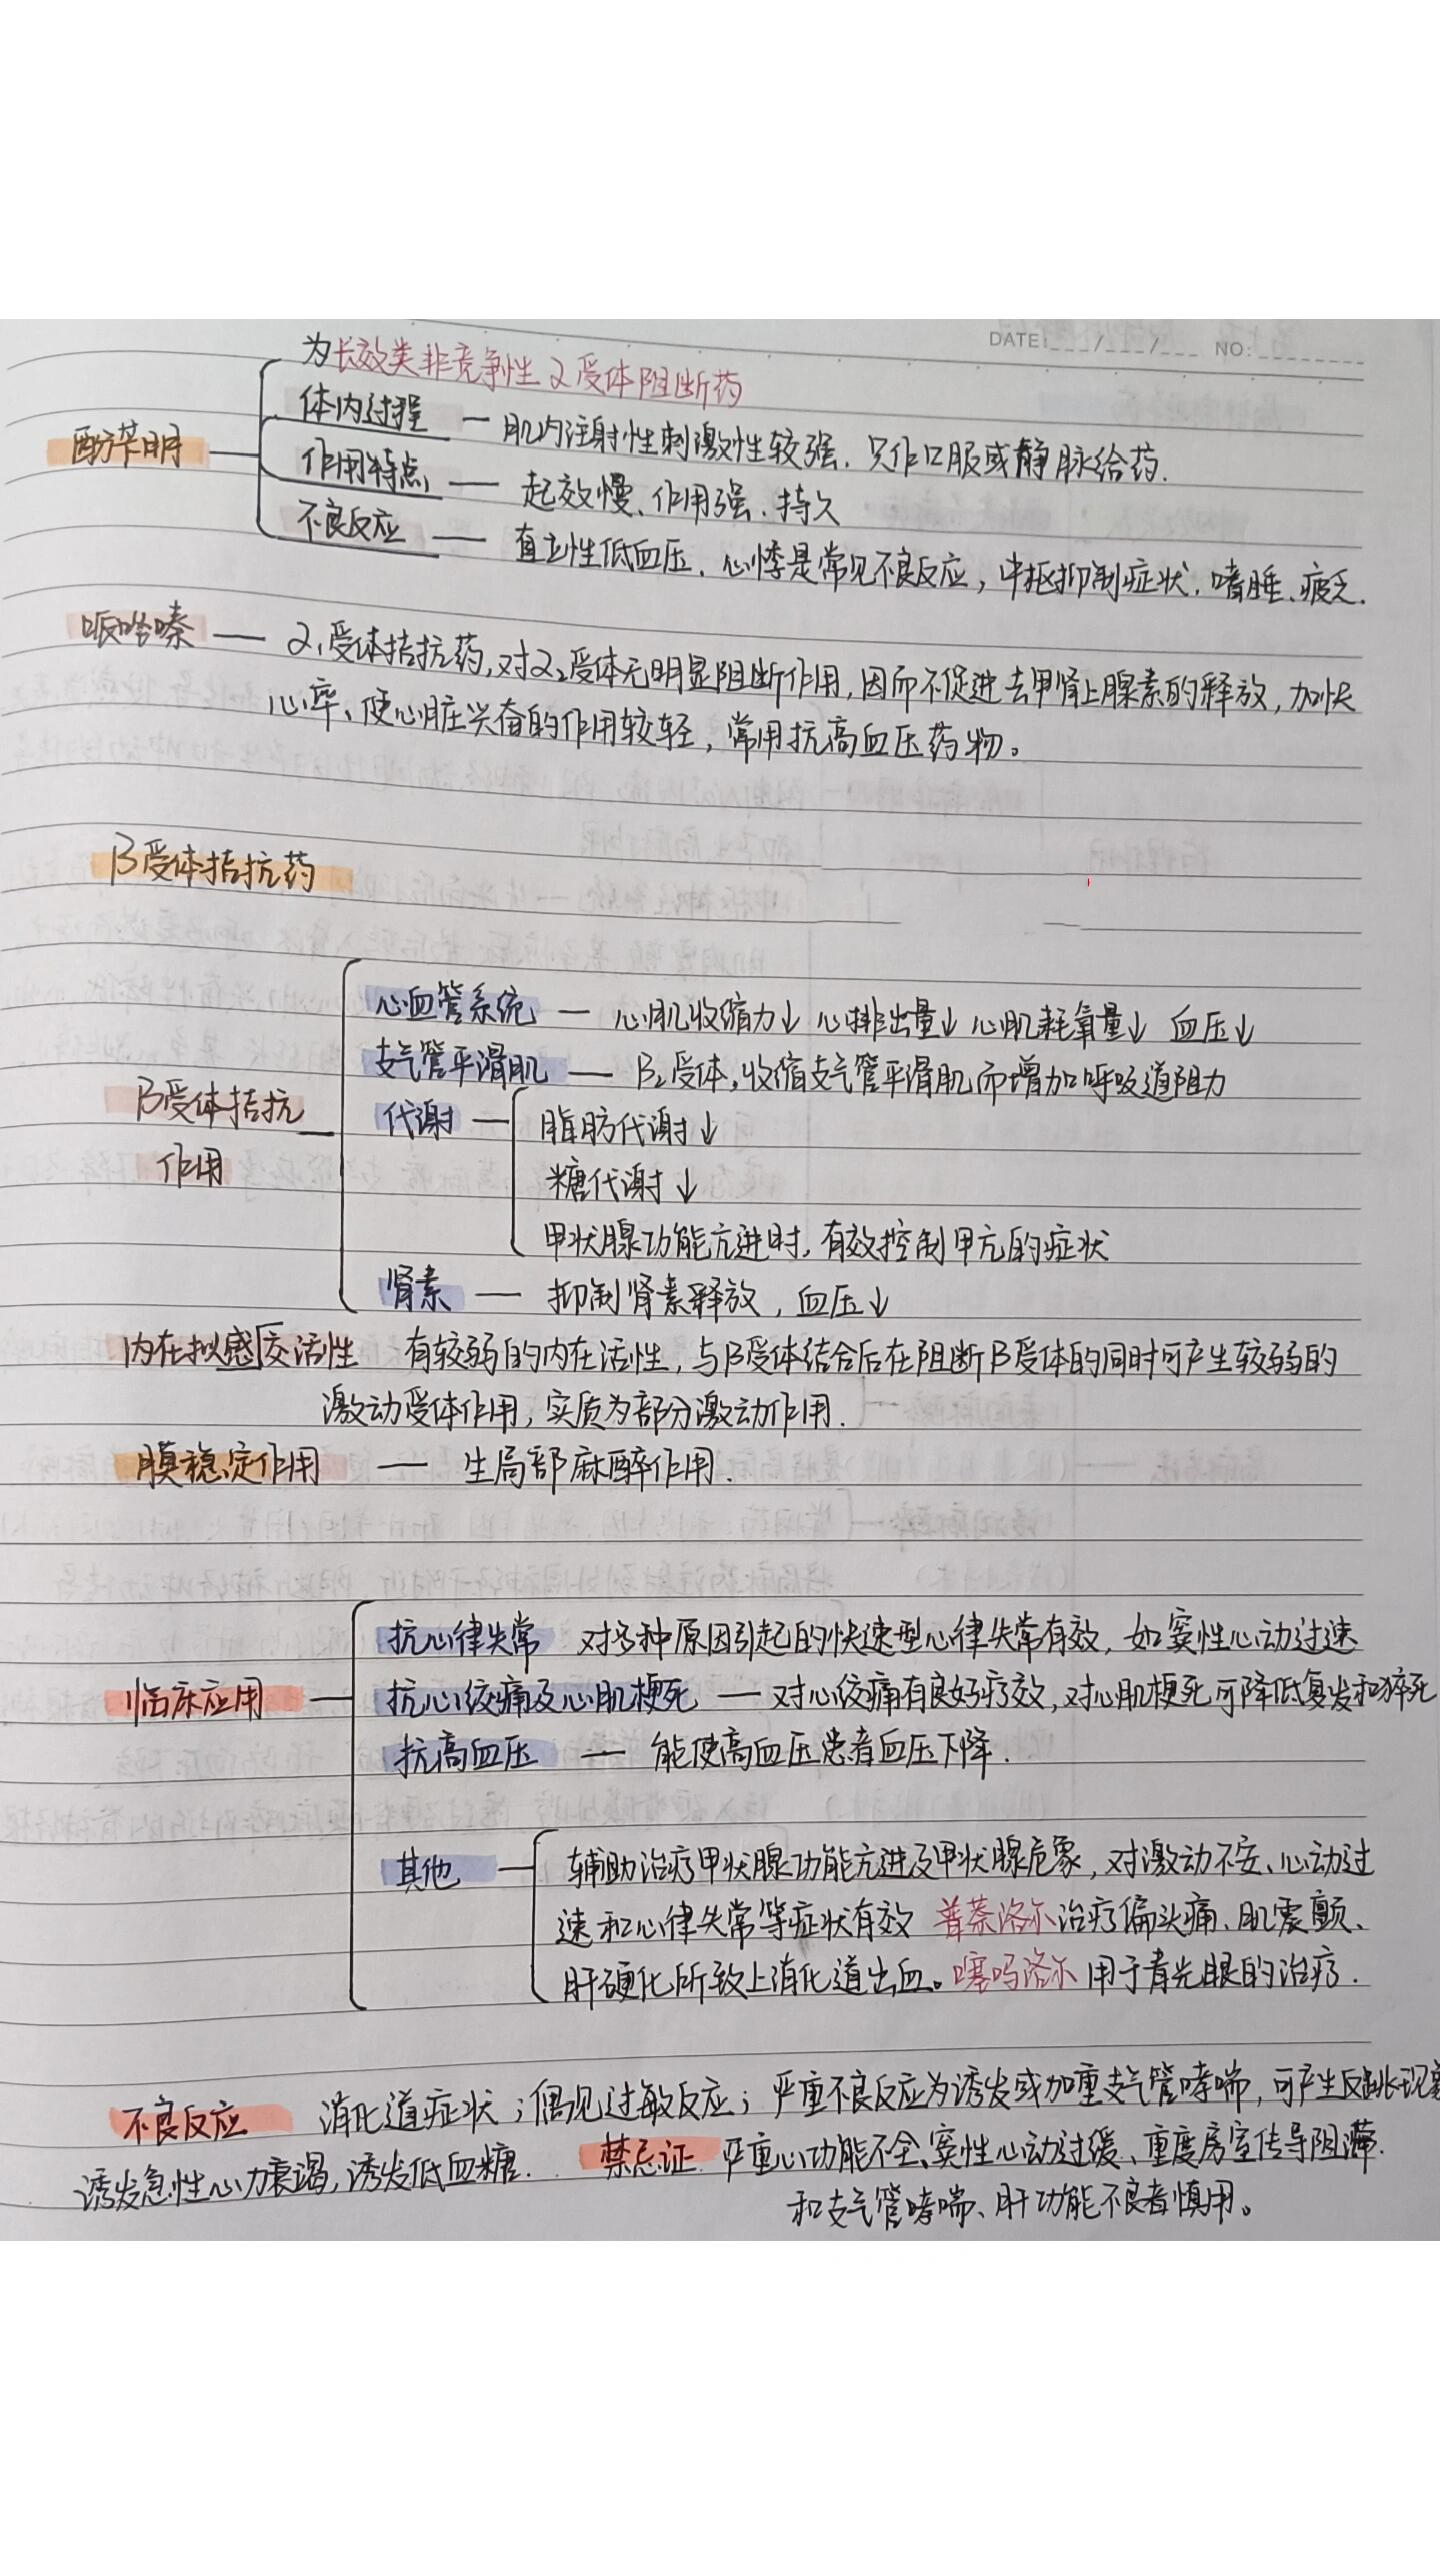 DATE: / / NO:
为长效类非竞争性α受体阻断药
酚苄明
体内过程 — 肌内注射性刺激性较强、只作口服或静脉给药.
作用特点 — 起效慢、作用强、持久
不良反应 — 直立性低血压、心悸是常见不良反应，中枢抑制症状、嗜睡、疲乏.
哌唑嗪 — α₁受体拮抗药，对α₂受体无明显阻断作用，因而不促进去甲肾上腺素的释放，加快
心率、使心脏兴奋的作用较轻，常用抗高血压药物。
β受体拮抗药
β受体拮抗
作用
心血管系统 — 心肌收缩力↓ 心排出量↓ 心肌耗氧量↓ 血压↓
支气管平滑肌 — β₂受体，收缩支气管平滑肌而增加呼吸道阻力
代谢 — 脂肪代谢↓
糖代谢↓
甲状腺功能亢进时，有效控制甲亢的症状
肾素 — 抑制肾素释放，血压↓
内在拟感交活性 有较弱的内在活性，与β受体结合后在阻断β受体的同时可产生较弱的
激动受体作用，实质为部分激动作用.
膜稳定作用 — 生局部麻醉作用.
临床应用
抗心律失常 对多种原因引起的快速型心律失常有效，如窦性心动过速
抗心绞痛及心肌梗死 — 对心绞痛有良好疗效，对心肌梗死可降低复发和猝死
抗高血压 — 能使高血压患者血压下降.
其他 — 辅助治疗甲状腺功能亢进及甲状腺危象，对激动不安、心动过
速和心律失常等症状有效 普萘洛尔治疗偏头痛、肌震颤、
肝硬化所致上消化道出血。噻吗洛尔用于青光眼的治疗.
不良反应 消化道症状；偶见过敏反应；严重不良反应为诱发或加重支气管哮喘，可产生反跳现象
诱发急性心力衰竭，诱发低血糖. 禁忌证 严重心功能不全、窦性心动过缓、重度房室传导阻滞.
和支气管哮喘、肝功能不良者慎用。